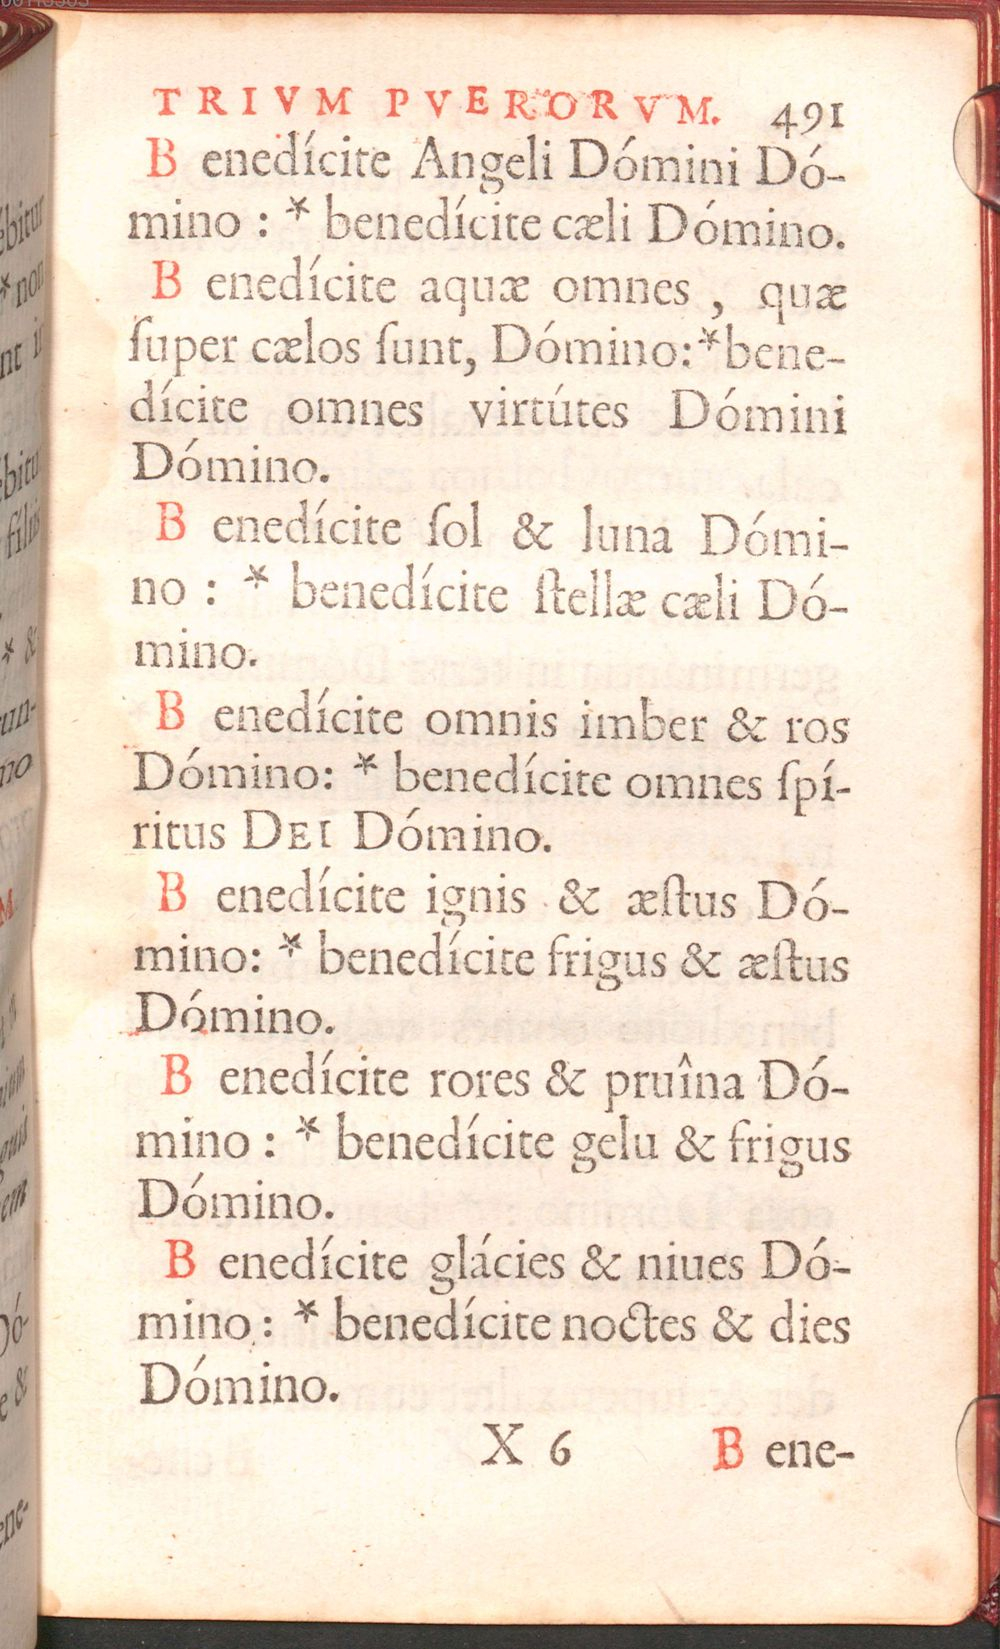 TRIVM PVERORVM. 491
Benedícite Angeli Dómini Dó-
mino : * benedícite cæli Dómino.
Benedícite aquæ omnes , quæ
ſuper cælos ſunt, Dómino:*bene-
dícite omnes virtútes Dómini
Dómino.
Benedícite ſol & luna Dómi-
no : * benedícite ſtellæ cæli Dó-
mino.
Benedícite omnis imber & ros
Dómino: * benedícite omnes ſpí-
ritus DEI Dómino.
Benedícite ignis & æſtus Dó-
mino: * benedícite frigus & æſtus
Dómino.
Benedícite rores & pruîna Dó-
mino : * benedícite gelu & frigus
Dómino.
Benedícite glácies & niues Dó-
mino : * benedícite noctes & dies
Dómino.
X 6 Bene-